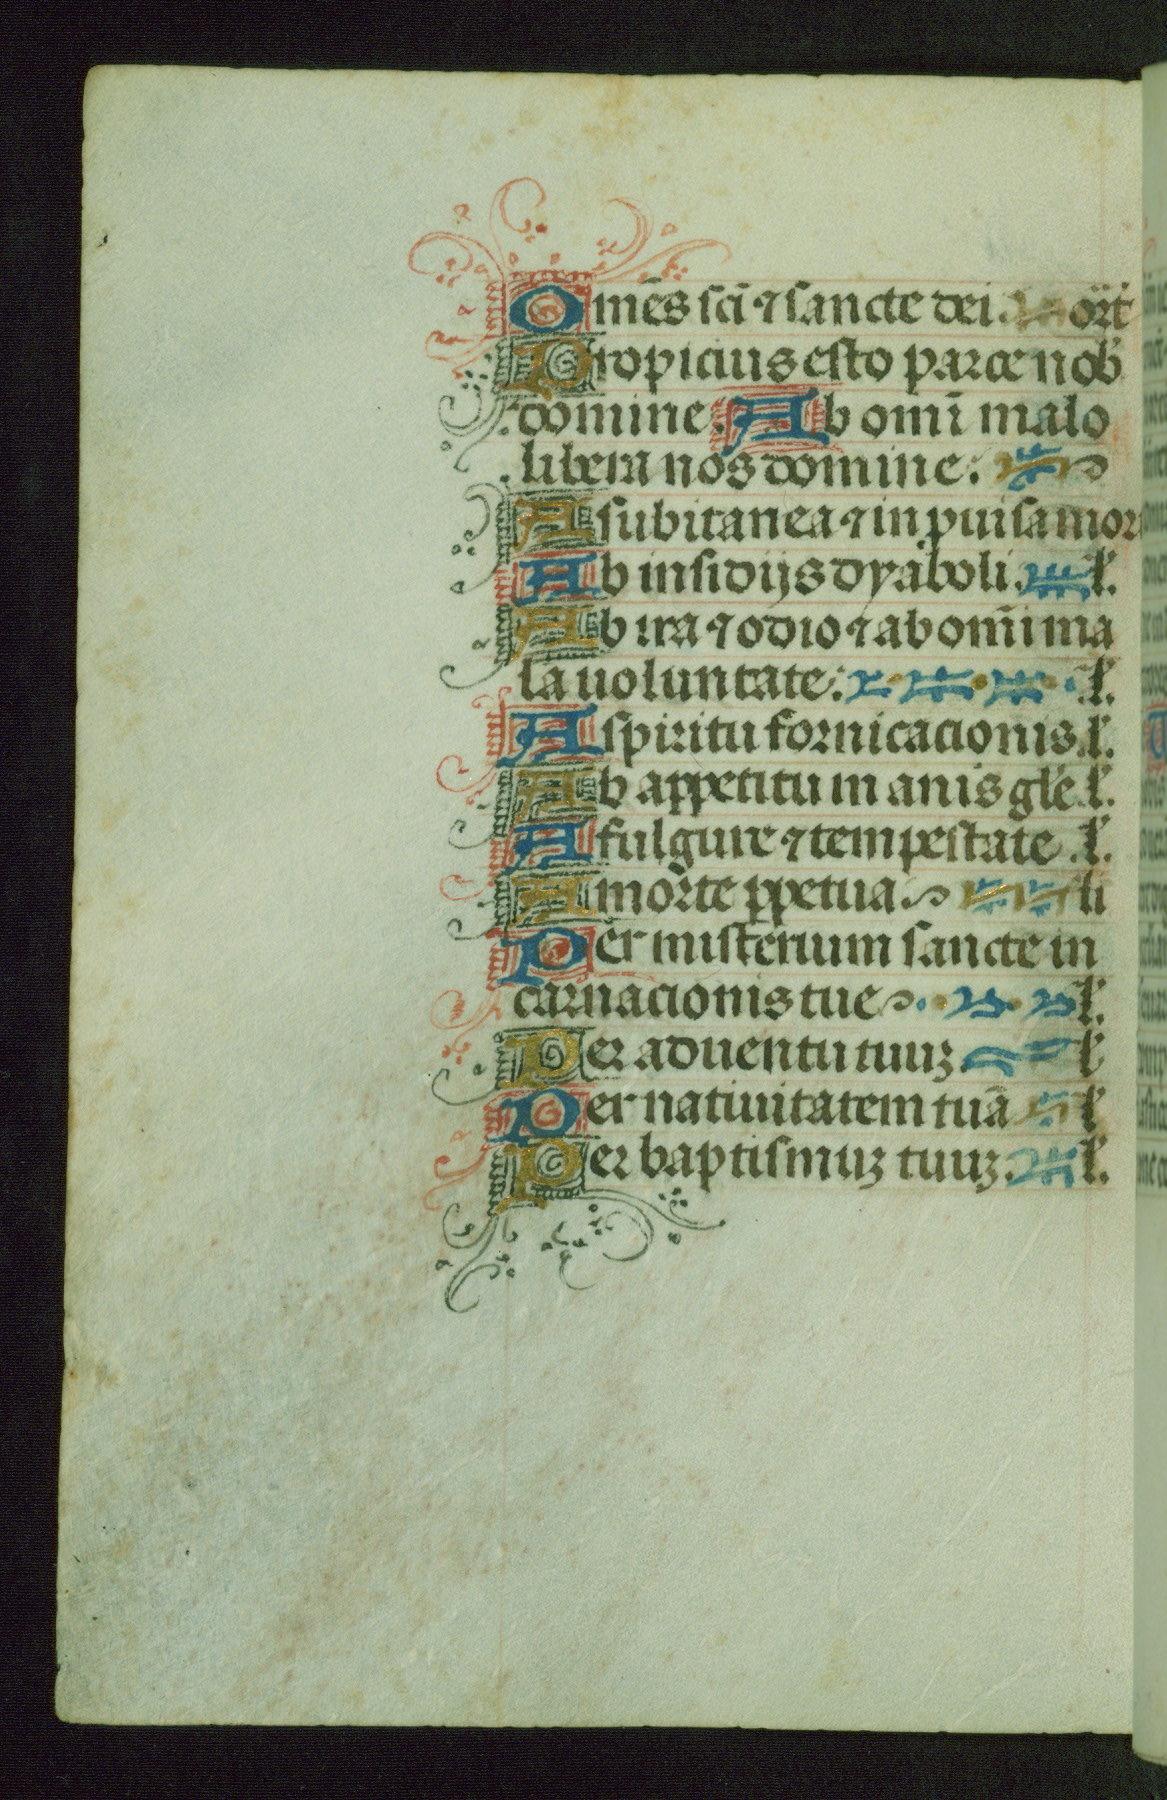 Omēs scī ⁊ sancte dei. ort
Propicius esto parce nob
domine. Ab omī malo
libera nos domine.
A subitanea ⁊ inpuisa mor
Ab insidijs dyaboli. l.
Ab ira ⁊ odio ⁊ ab om̄i ma
la uoluntate. l.
A spiritu fornicacionis. l.
Ab appetitu inanis gl̄e l.
A fulgure ⁊ tempestate. l.
A morte ꝑpetua li
Per misterium sancte in
carnacionis tue l.
Per aduentu tuuꝫ l
Per natiuitatem tuā l
Per baptismuꝫ tuuꝫ. l.